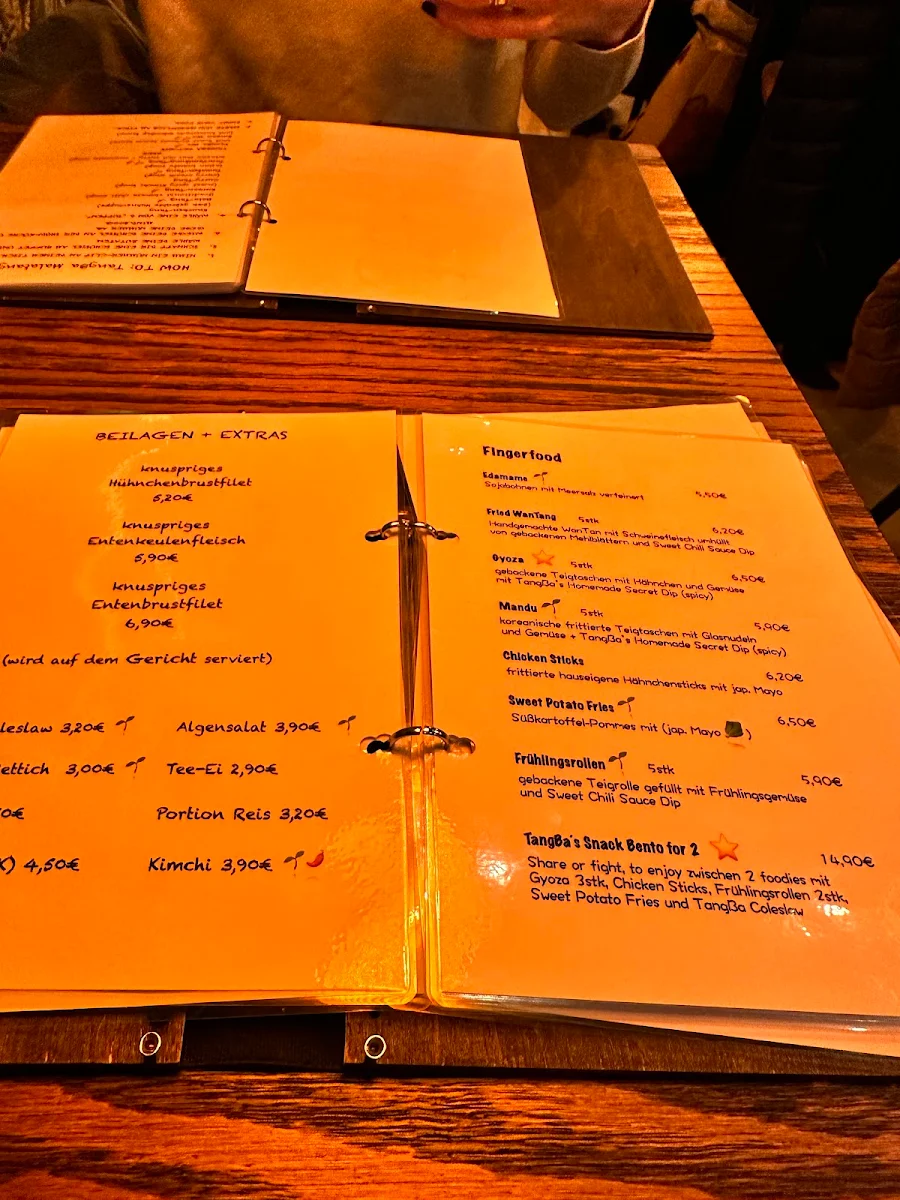 HOW TO: TangBa Malatang
BEILAGEN + EXTRAS
knuspriges
Hühnchenbrustfilet
6,20€
knuspriges
Entenkeulenfleisch
6,90€
knuspriges
Entenbrustfilet
6,90€
(wird auf dem Gericht serviert)
leslaw 3,20€ Algensalat 3,90€
ettich 3,00€ Tee-Ei 2,90€
0€ Portion Reis 3,20€
) 4,50€ Kimchi 3,90€
Fingerfood
Edamame
Sojabohnen mit Meersalz verfeinert 5,50€
Fried WanTang 5stk 6,20€
Handgemachte WanTan mit Schweinefleisch umhüllt
von gebackenen Mehlblättern und Sweet Chili Sauce Dip
Gyoza 5stk 6,50€
gebackene Teigtaschen mit Hähnchen und Gemüse
mit TangBa's Homemade Secret Dip (spicy)
Mandu 5stk 5,90€
koreanische frittierte Teigtaschen mit Glasnudeln
und Gemüse + TangBa's Homemade Secret Dip (spicy)
Chicken Sticks 6,20€
frittierte hauseigene Hähnchensticks mit jap. Mayo
Sweet Potato Fries 6,50€
Süßkartoffel-Pommes mit (jap. Mayo )
Frühlingsrollen 5stk 5,90€
gebackene Teigrolle gefüllt mit Frühlingsgemüse
und Sweet Chili Sauce Dip
TangBa's Snack Bento for 2 14,90€
Share or fight, to enjoy zwischen 2 foodies mit
Gyoza 3stk, Chicken Sticks, Frühlingsrollen 2stk,
Sweet Potato Fries und TangBa Coleslaw